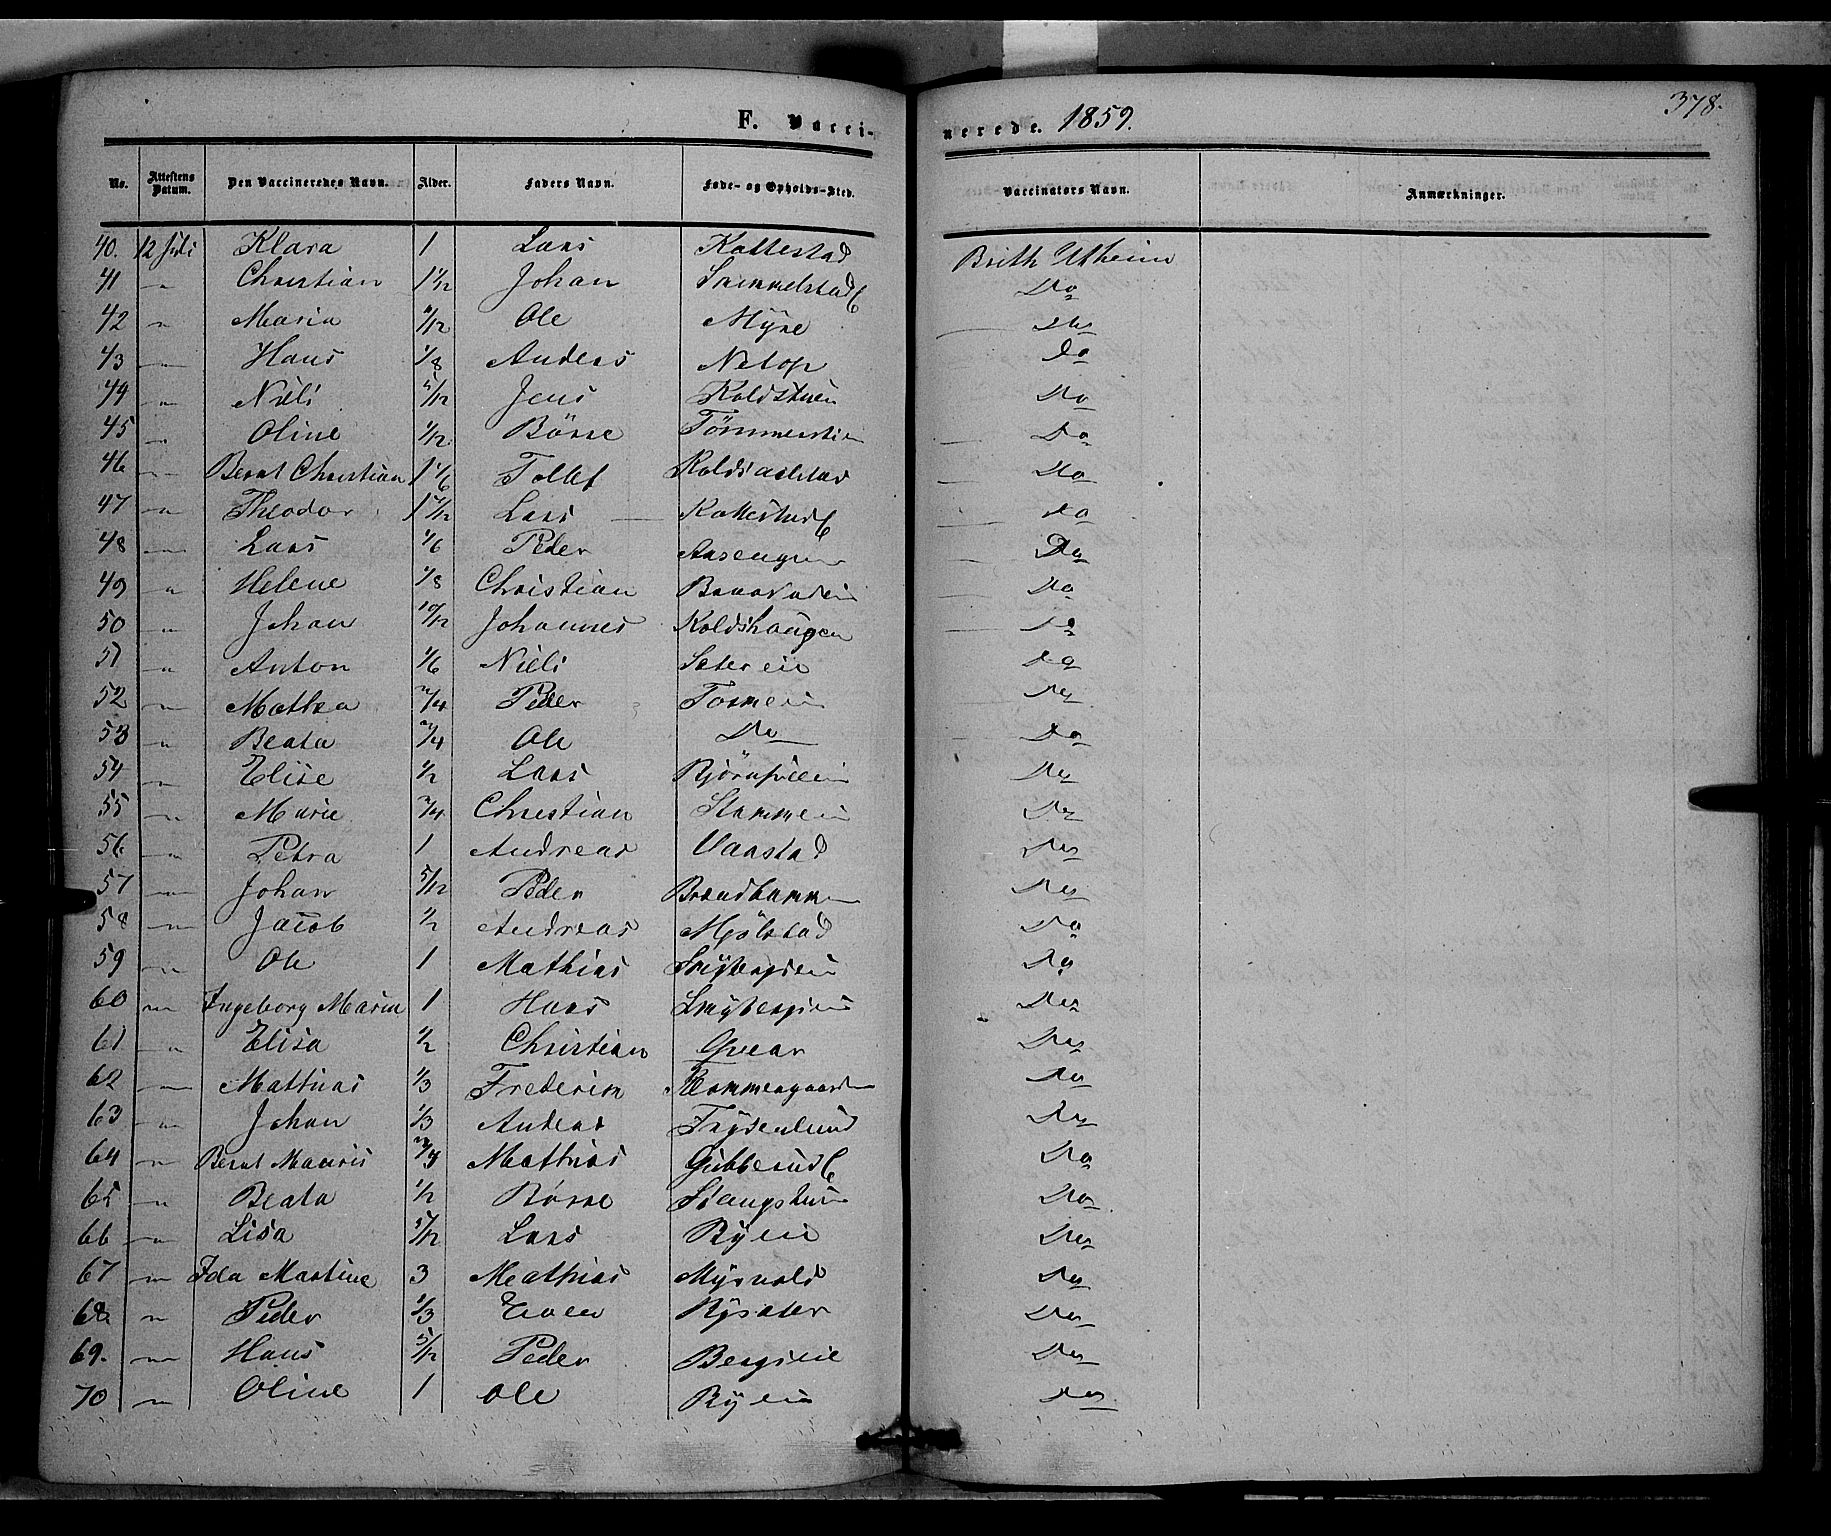 378.
F. Vaccinerede. 1859.
No. | Attestens Datum. | Den Vaccineredes Navn. | Alder. | Faders Navn. | Føde- og Opholds-Sted. | Vaccinators Navn. | Anmærkninger.
40. 12 Juli Klara 1 Lars Kattestad Brith Utheim
41 " Christian Johan Simmelstad Do
42 " Maria Ole Myre Do
43 " Hans 1/8 Anders Netop Do
44 " Nils 5/12 Jens Koldstuen Do
45 " Oline 1/12 Börre Do
46 " Bernt Christian 1 1/6 Tollef Do
47 " Theodor Lars Kattestad Do
48 " Lars 1/6 Peder Aasengen Do
49 " Helene 1/8 Christian Do
50 " Johan 10/12 Johannes Koldshaugen Do
51 " Anton 1/6 Niels Setereie Do
52 " Mathea 3/4 Peder Do
53 " Beata 3/4 Ole Do Do
54 " Elise 1/2 Lars Do
55 " Marie 3/4 Christian Do
56 " Petra 1 Andreas Vaarstad Do
57 " Johan 5/12 Peder Do
58 " Jacob 1/2 Andreas Mjölstad Do
59 " Ole 1 Mathias Do
60 " Ingeborg Maria 1 Hans Do
61 " Elisa 1/2 Christian Do
62 " Mathias 1/3 Frederik Do
63 " Johan 1/3 Anders Frydenlund Do
64 " Bernt Mauris 3/4 Mathias Gubberud Do
65 " Beata 1/2 Börre Do
66 " Lisa 5/12 Lars Ryeie Do
67 " Ida Martine 3 Mathias Myrvold Do
68 " Peder 1/3 Even Rysæter Do
69. " Hans 5/12 Peder Bergseie Do
70 " Oline 1 Ole Ryeie Do